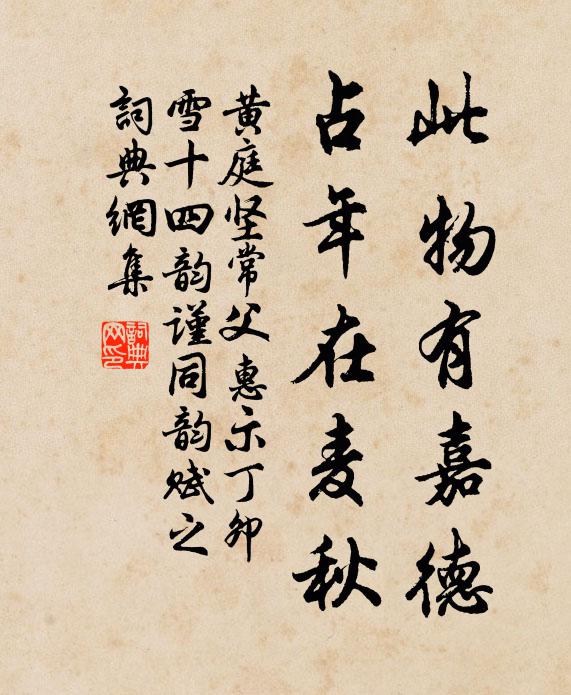 此物有嘉德
占年在麦秋
黄庭坚常父惠示丁卯
雪十四韵谨同韵赋之
詞典網集
詞典网印